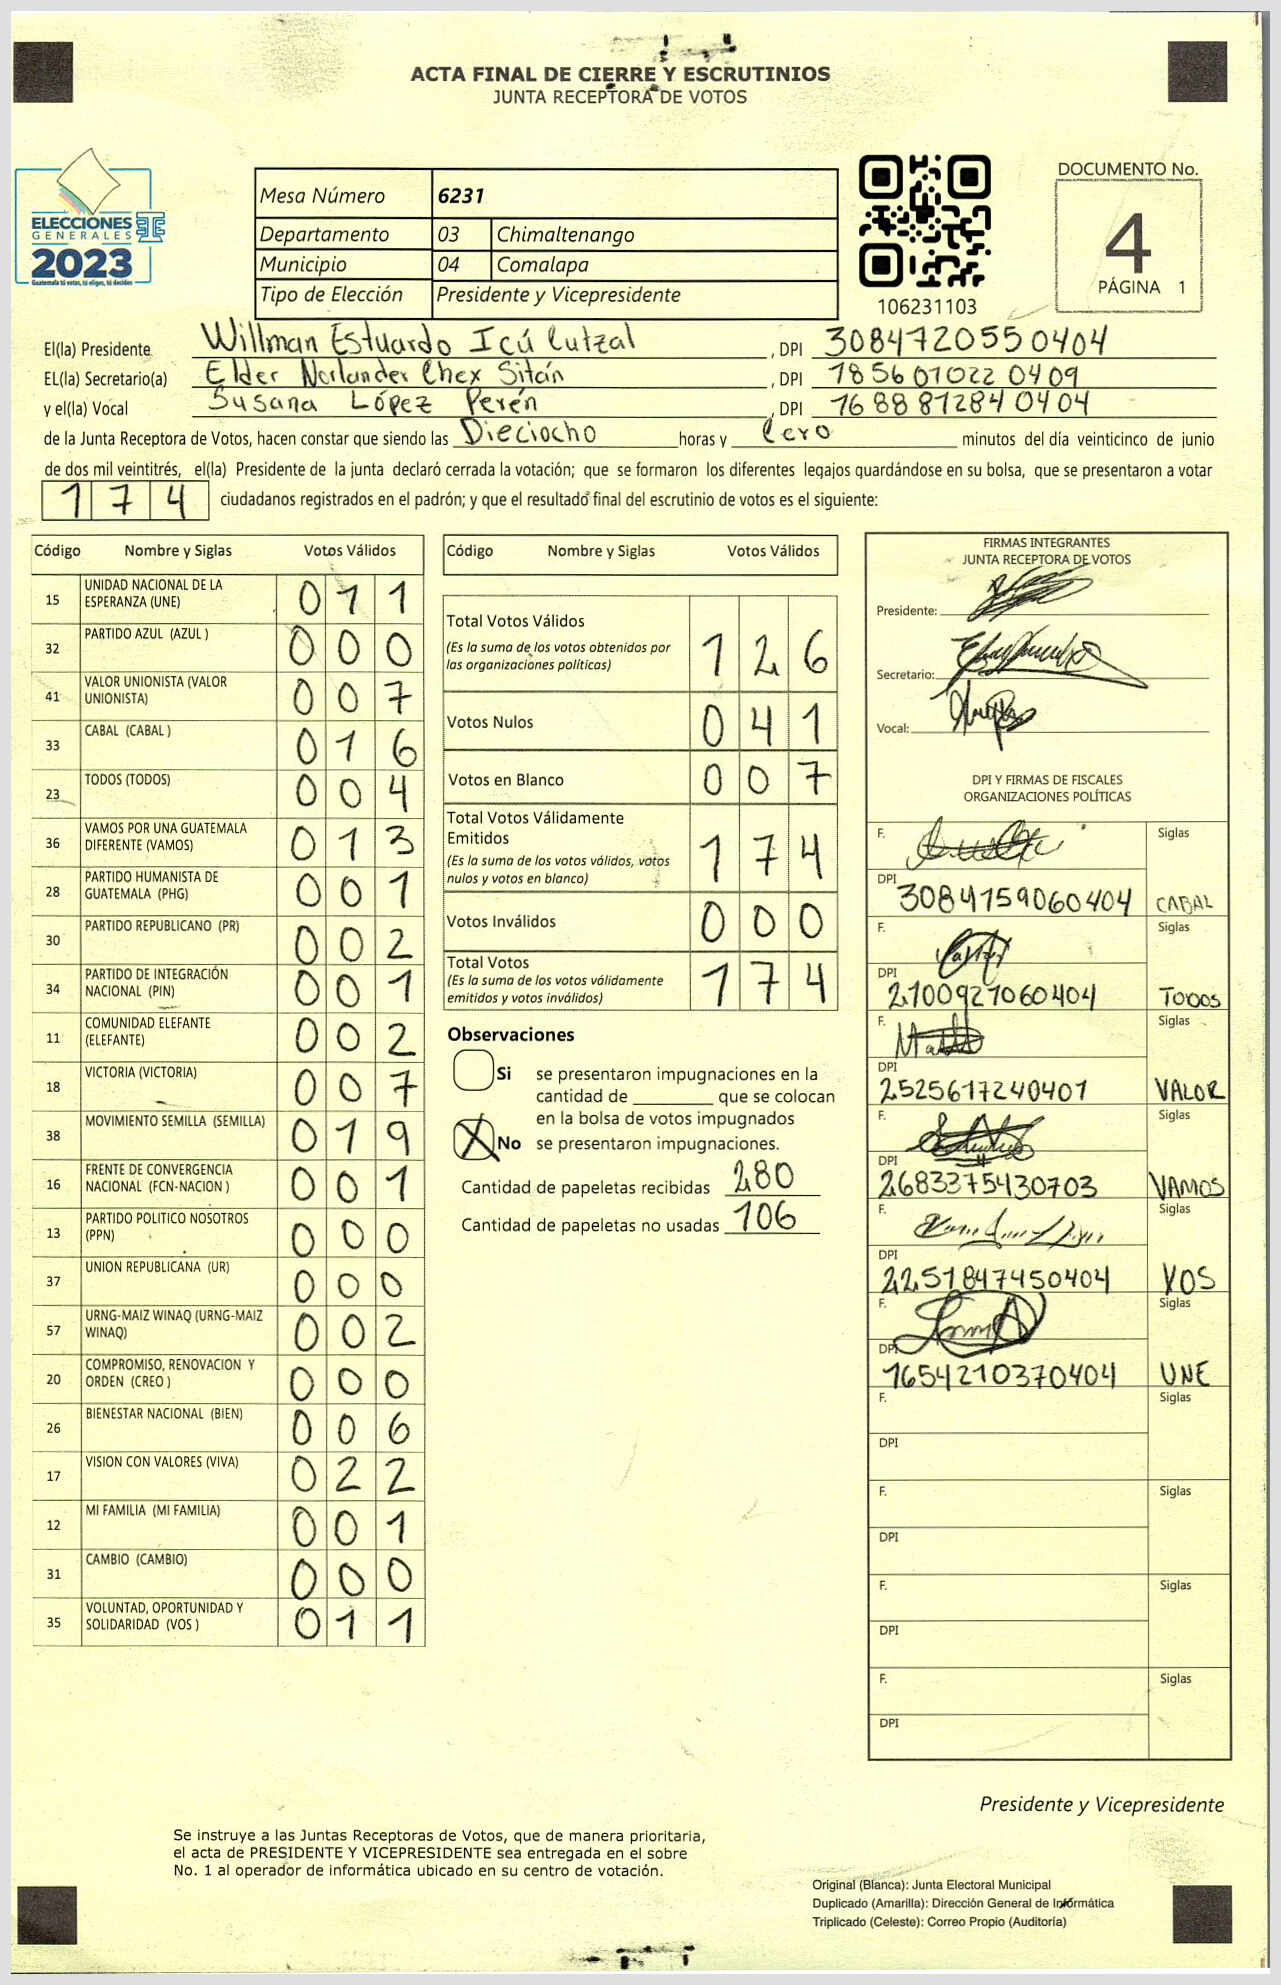 ACTA FINAL DE CIERRE Y ESCRUTINIOS
JUNTA RECEPTORA DE VOTOS
ELECCIONES
GENERALES
2023
Guatemala tú votas, tú eliges, tú decides
Mesa Número 6231
Departamento 03 Chimaltenango
Municipio 04 Comalapa
Tipo de Elección Presidente y Vicepresidente
106231103
DOCUMENTO No.
4
PÁGINA 1
El(la) Presidente Willman Estuardo Icú Cutzal , DPI 3084720550404
EL(la) Secretario(a) Elder Norlander Chex Sitán , DPI 1856010220409
y el(la) Vocal Susana López Perén , DPI 1688812840404
de la Junta Receptora de Votos, hacen constar que siendo las Dieciocho horas y Cero minutos del día veinticinco de junio
de dos mil veintitrés, el(la) Presidente de la junta declaró cerrada la votación; que se formaron los diferentes legajos guardándose en su bolsa, que se presentaron a votar
174 ciudadanos registrados en el padrón; y que el resultado final del escrutinio de votos es el siguiente:
Código Nombre y Siglas Votos Válidos
15 UNIDAD NACIONAL DE LA ESPERANZA (UNE) 011
32 PARTIDO AZUL (AZUL ) 000
41 VALOR UNIONISTA (VALOR UNIONISTA) 007
33 CABAL (CABAL ) 016
23 TODOS (TODOS) 004
36 VAMOS POR UNA GUATEMALA DIFERENTE (VAMOS) 013
28 PARTIDO HUMANISTA DE GUATEMALA (PHG) 001
30 PARTIDO REPUBLICANO (PR) 002
34 PARTIDO DE INTEGRACIÓN NACIONAL (PIN) 001
11 COMUNIDAD ELEFANTE (ELEFANTE) 002
18 VICTORIA (VICTORIA) 007
38 MOVIMIENTO SEMILLA (SEMILLA) 019
16 FRENTE DE CONVERGENCIA NACIONAL (FCN-NACION ) 001
13 PARTIDO POLITICO NOSOTROS (PPN) 000
37 UNION REPUBLICANA (UR) 000
57 URNG-MAIZ WINAQ (URNG-MAIZ WINAQ) 002
20 COMPROMISO, RENOVACION Y ORDEN (CREO ) 000
26 BIENESTAR NACIONAL (BIEN) 006
17 VISION CON VALORES (VIVA) 022
12 MI FAMILIA (MI FAMILIA) 001
31 CAMBIO (CAMBIO) 000
35 VOLUNTAD, OPORTUNIDAD Y SOLIDARIDAD (VOS ) 011
Código Nombre y Siglas Votos Válidos
Total Votos Válidos 126
(Es la suma de los votos obtenidos por
las organizaciones políticas)
Votos Nulos 041
Votos en Blanco 007
Total Votos Válidamente
Emitidos 174
(Es la suma de los votos válidos, votos
nulos y votos en blanco)
Votos Inválidos 000
Total Votos 174
(Es la suma de los votos válidamente
emitidos y votos inválidos)
Observaciones
Si se presentaron impugnaciones en la
cantidad de ________ que se colocan
en la bolsa de votos impugnados
X No se presentaron impugnaciones.
Cantidad de papeletas recibidas 280
Cantidad de papeletas no usadas 106
FIRMAS INTEGRANTES
JUNTA RECEPTORA DE VOTOS
Presidente:
Secretario:
Vocal:
DPI Y FIRMAS DE FISCALES
ORGANIZACIONES POLÍTICAS
F. Siglas
DPI 3084159060404 CABAL
F. Siglas
DPI 2100921060404 TODOS
F. Siglas
DPI 2525617240401 VALOR
F. Siglas
DPI 2683375430703 VAMOS
F. Siglas
DPI 2251847450404 VOS
F. Siglas
DPI 1654210370404 UNE
F. Siglas
DPI
F. Siglas
DPI
F. Siglas
DPI
F. Siglas
DPI
Presidente y Vicepresidente
Se instruye a las Juntas Receptoras de Votos, que de manera prioritaria,
el acta de PRESIDENTE Y VICEPRESIDENTE sea entregada en el sobre
No. 1 al operador de informática ubicado en su centro de votación.
Original (Blanca): Junta Electoral Municipal
Duplicado (Amarilla): Dirección General de Informática
Triplicado (Celeste): Correo Propio (Auditoría)